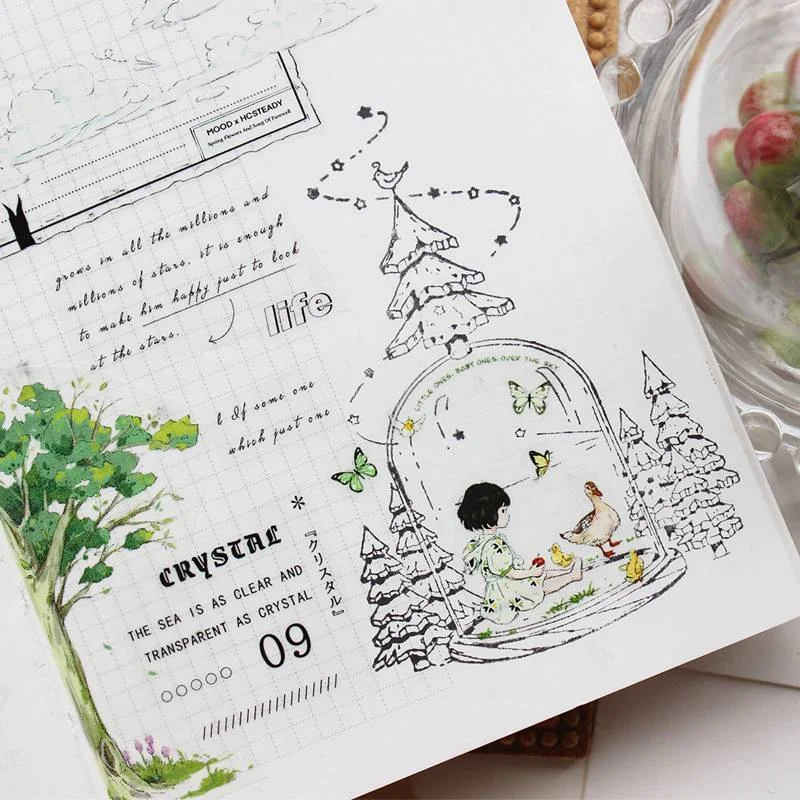 MOOD x HCSTEADY
Spring Flowers And Song Of Farewell
grows in all the millions and
millions of stars, it is enough
to make him happy just to look
at the stars.
life
LITTLE ONES, BABY ONES, OVER THE SKY
l If some one
which just one
CRYSTAL
*
『クリスタル』
THE SEA IS AS CLEAR AND
TRANSPARENT AS CRYSTAL
09